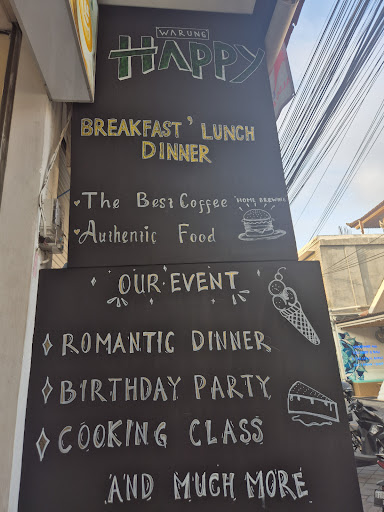 WARUNG
HAPPY
BREAKFAST ' LUNCH
DINNER
The Best Coffee
HOME BREWING
Authentic Food
OUR EVENT
ROMANTIC DINNER
BIRTHDAY PARTY
COOKING CLASS
AND MUCH MORE